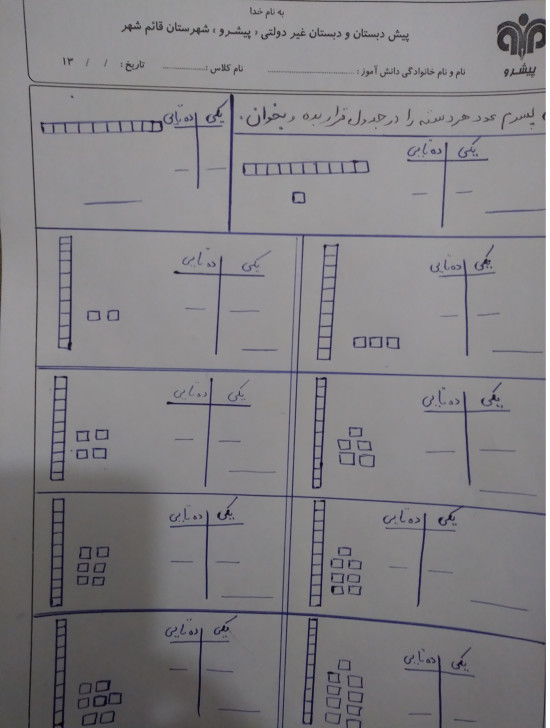 به نام خدا
پیش دبستان و دبستان غیر دولتی « پیشرو » شهرستان قائم شهر
پیشرو
نام و نام خانوادگی دانش آموز: نام کلاس: تاریخ: / / ۱۳
پسرم عدد هر دسته را در جدول قرار بده و بخوان.
یکی ده تایی
یکی ده تایی
یکی ده تایی
یکی ده تایی
یکی ده تایی
یکی ده تایی
یکی ده تایی
یکی ده تایی
یکی ده تایی
یکی ده تایی